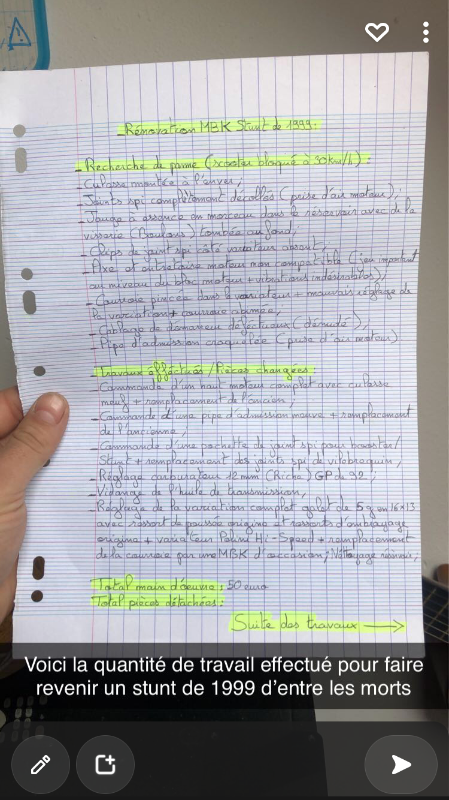 - Rénovation MBK Stunt de 1999:
- Recherche de panne (scooter bloqué à 30km/h):
- Culasse montée à l'enver,
- Joints spi complètement décollés (prise d'air moteur),
- Jauge à essence en morceau dans le réservoir avec de la
visserie (Boulons) tombée au fond,
- Clips de joint spi côté variateur absent,
- Axe et entretoise moteur non compatible (jeu important
au niveau du bloc moteur + vibrations indésirables),
- Courroie pincée dans le variateur + mauvais réglage de
la variation + courroie abimée,
- Cablage de démareur défectueux (dénudé),
- Pipe d'admission craquelée (prise d'air moteur)
- Travaux éffectués / Pièces changées:
- Commande d'un haut moteur complet avec culasse
neuf + remplacement de l'ancien,
- Commande d'une pipe d'admission neuve + remplacement
de l'ancienne,
- Commande d'une pochette de joint spi pour booster/
Stunt + remplacement des joints spi de vilebrequin,
- Réglage carburateur 12 mm (Riche) GP de 92,
- Vidange de l'huile de transmission,
- Réglage de la variation complet galet de 5g en 16x13
avec ressort de poussée origine et ressorts d'embrayage
origine + variateur Polini Hi-Speed + remplacement
de la courroie par une MBK d'occasion, Nettoyage réservoir,
- Total main d'oeuvre: 50 euro
- Total pièces détachées:
Suite des travaux →
Voici la quantité de travail effectué pour faire
revenir un stunt de 1999 d'entre les morts